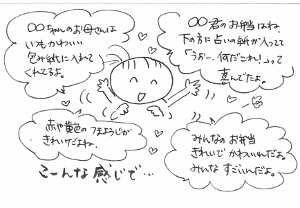 〇〇ちゃんのお母さんは
いつもかわいい
包み紙に入れて
くれてるよ。
〇〇君のお弁当はね、
下の方に占いの紙が入ってて
「うおー、何だこれ!」って
喜んでたよ。
赤や黄色のつまようじが
きれいだよね、
みんなのお弁当
きれいでかわいいんだよ。
みんなすごいんだよ。
こーんな感じで…